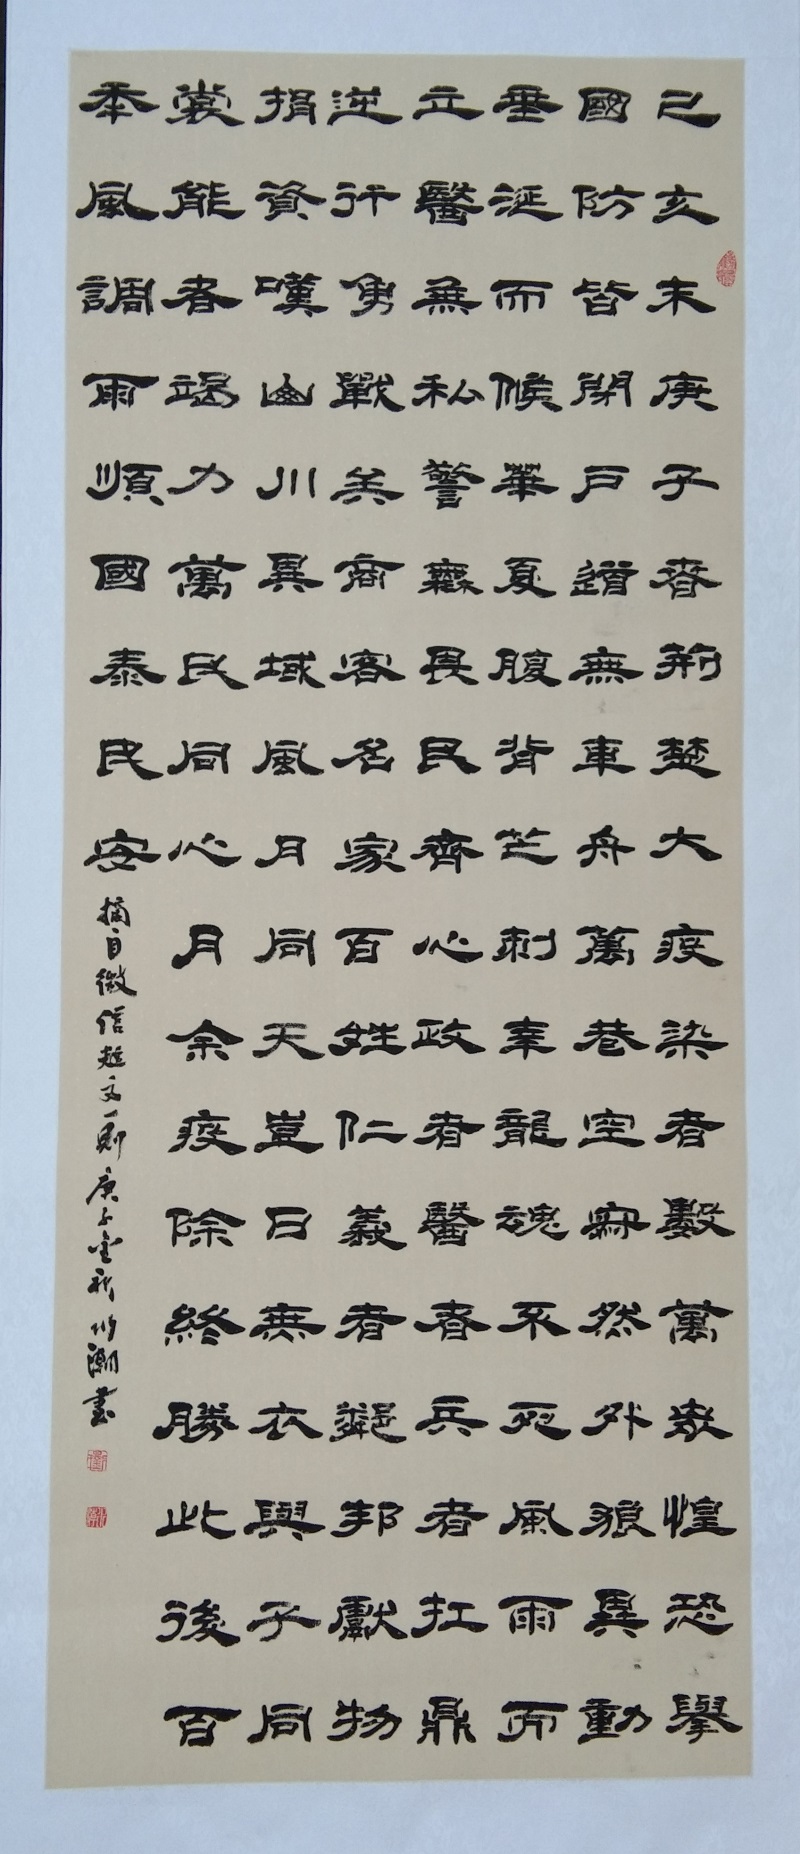 己亥末庚子春荊楚大疫染者數萬衆惶恐舉
國防皆閉戶道無車舟萬巷空寂然外狼異動
垂涎而候華夏腹背芒刺幸龍魂不死風雨而
立醫無私警無畏民齊心政者醫者兵者扛鼎
逆行勇戰矣商客名家百姓仁義者鄰邦獻物
捐資嘆山川異域風月同天豈曰無衣與子同
裳能者竭力萬民同心月余疫除終勝此後百
年風調雨順國泰民安
摘自微信短文一則庚子金秋 書